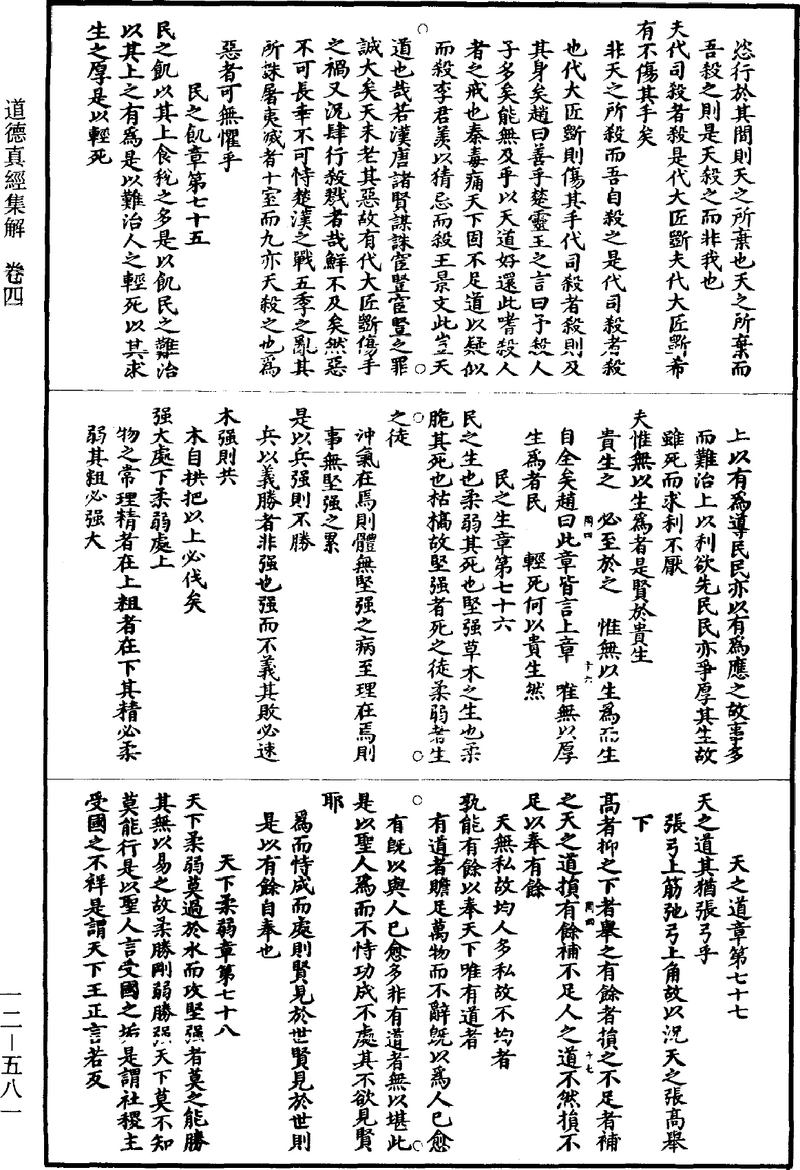 恣行於其間則天之所棄也天之所棄而
吾殺之則是天殺之而非我也
夫代司殺者殺是代大匠斲夫代大匠斲希
有不傷其手矣
非天之所殺而吾自殺之是代司殺者殺
也代大匠斲則傷其手代司殺者殺則及
其身矣趙曰善乎楚靈王之言曰予殺人
子多矣能無及乎以天道好還此嗜殺人
者之戒也秦毒痡天下固不足道以疑似
而殺李君羨以猜忌而殺王景文此豈天
道也哉若漢唐諸賢謀誅宦豎宦豎之罪
誠大矣天未老其惡故有代大匠斲傷手
之禍又況肆行殺戮者哉鮮不及矣然惡
不可長幸不可恃楚漢之戰五季之亂其
所誅屠夷滅者十室而九亦天殺之也為
惡者可無懼乎
民之飢章第七十五
民之飢以其上食稅之多是以飢民之難治
以其上之有為是以難治人之輕死以其求
生之厚是以輕死
上以有為導民民亦以有為應之故事多
而難治上以利欲先民民亦爭厚其生故
雖死而求利不厭
夫惟無以生為者是賢於貴生
貴生之 必至於之 惟無以生為而生
自全矣趙曰此章皆言上章 唯無以厚
生為者民 輕死何以貴生然
民之生章第七十六
民之生也柔弱其死也堅强草木之生也柔
脆其死也枯槁故堅强者死之徒柔弱者生
之徒
沖氣在焉則體無堅强之病至理在焉則
事無堅强之累
是以兵强則不勝
兵以義勝者非强也强而不義其敗必速
木强則共
木自拱把以上必伐矣
强大處下柔弱處上
物之常理精者在上粗者在下其精必柔
弱其粗必强大
天之道章第七十七
天之道其猶張弓乎
張弓上筋弛弓上角故以況天之張高舉
下
高者抑之下者舉之有餘者損之不足者補
之天之道損有餘補不足人之道不然損不
足以奉有餘
天無私故均人多私故不均者
孰能有餘以奉天下唯有道者
有道者贍足萬物而不辭旣以為人已愈
有旣以與人已愈多非有道者無以堪此
是以聖人為而不恃功成不處其不欲見賢
耶
為而恃成而處則賢見於世賢見於世則
是以有餘自奉也
天下柔弱章第七十八
天下柔弱莫過於水而攻堅强者莫之能勝
其無以易之故柔勝剛弱勝强天下莫不知
莫能行是以聖人言受國之垢是謂社稷主
受國之不祥是謂天下王正言若反
道德真經集解 卷四
一二—五八一